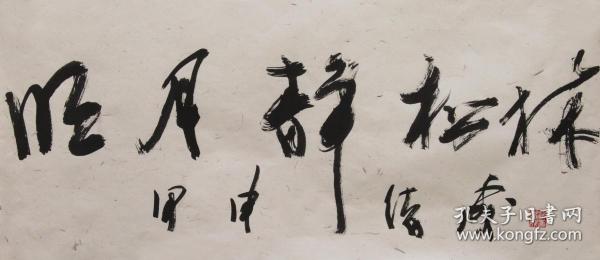 明月静松林
甲申
孔夫子旧书网
www.kongfz.com